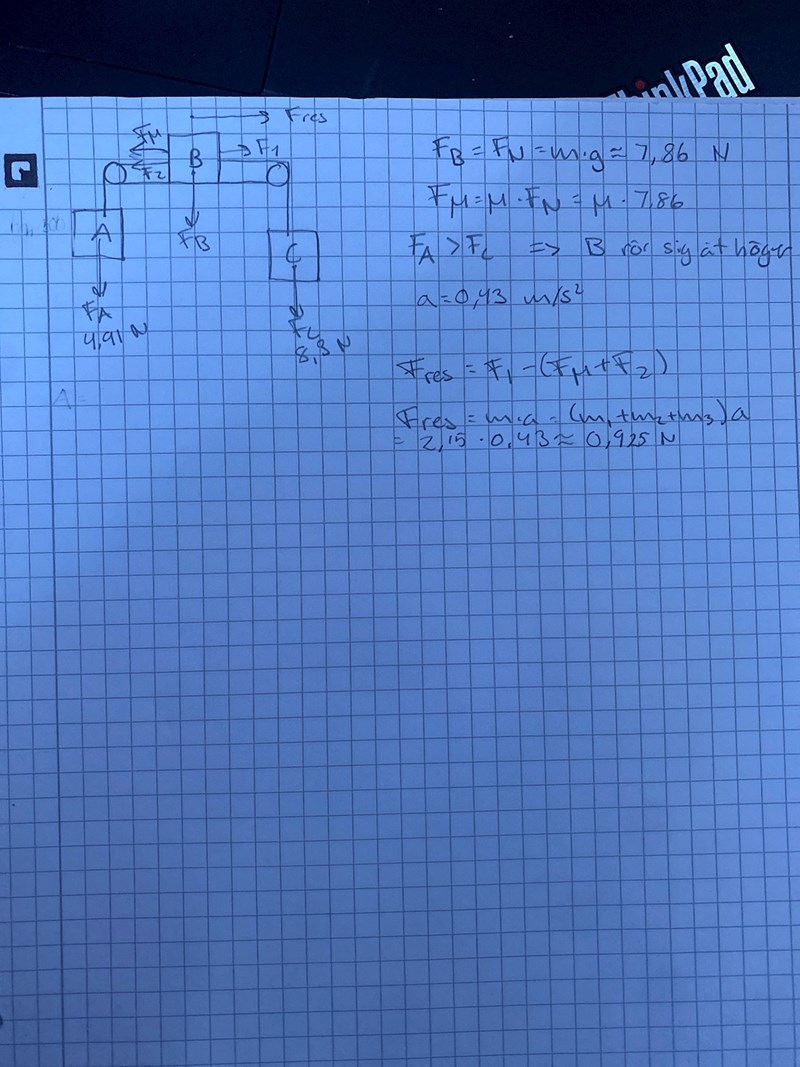 ThinkPad
Fres
Fμ
B
F1
F2
A
FB
C
FA
4,91 N
FC
8,3 N
FB = FN = m·g ≈ 7,86 N
Fμ = μ·FN = μ·7,86
FA > FC => B rör sig åt höger
a = 0,43 m/s²
Fres = F1 - (Fμ + F2)
Fres = m·a = (m1+m2+m3)a
= 2,15 · 0,43 ≈ 0,925 N
A=